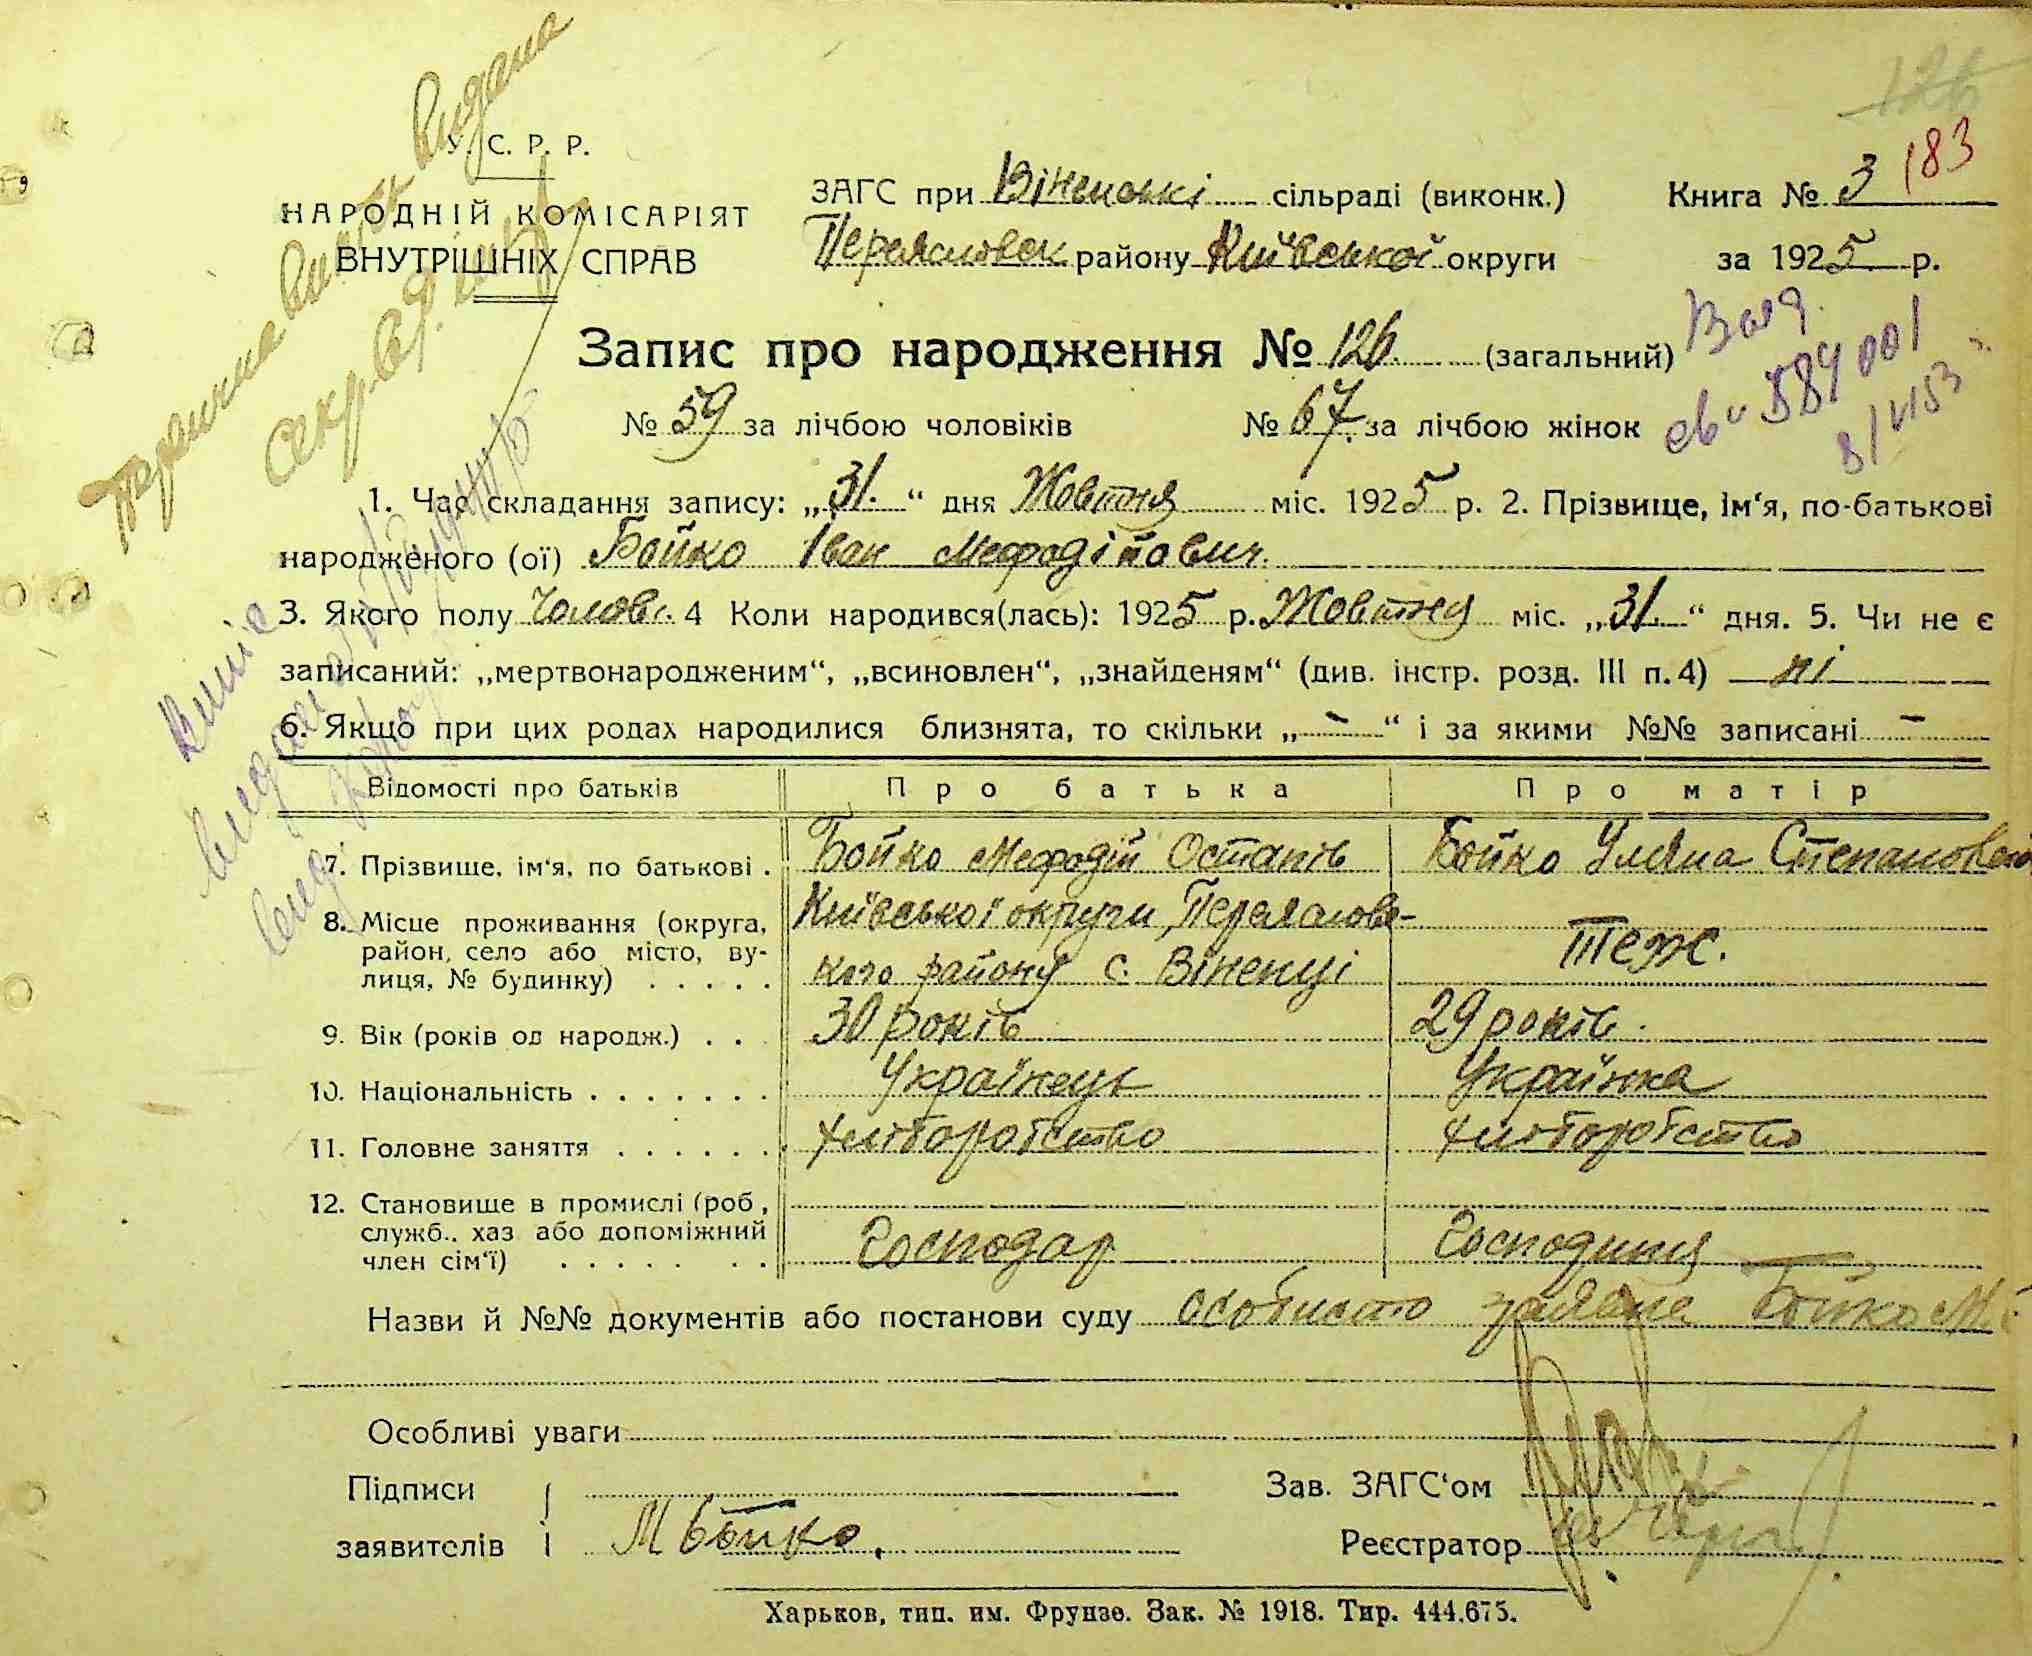 126
183
У. С. Р. Р.
НАРОДНІЙ КОМІСАРІЯТ
ВНУТРІШНІХ СПРАВ
ЗАГС при Віненські сільраді (виконк.)
Переясловск району Київської округи
Книга № 3
за 1925 р.
Запис про народження № 126. (загальний)
№ 59 за лічбою чоловіків № 67. за лічбою жінок
св 584001
1. Час складання запису: „31.“ дня Жовтня міс. 1925 р. 2. Прізвище, ім‘я, по-батькові
народженого (ої) Бойко Іван Мефодійович.
3. Якого полу Чолов. 4 Коли народився(лась): 1925 р. Жовтня міс. „31.“ дня. 5. Чи не є
записаний: „мертвонародженим“, „всиновлен“, „знайденям“ (див. інстр. розд. III п. 4) ні
6. Якщо при цих родах народилися близнята, то скільки „-“ і за якими №№ записані -
Відомості про батьків Про батька Про матір
7. Прізвище, ім‘я, по батькові . Бойко Мефодій Остапів Бойко Уляна Степановна
8. Місце проживання (округа, район, село або місто, вулиця, № будинку) . . . . . Київської округи, Переяслов-
кого району с. Віненці Теж.
9. Вік (років од народж.) . . . 30 років 29 років.
10. Національність . . . . . . . Українець Українка
11. Головне заняття . . . . . . . хліборобство хліборобство
12. Становище в промислі (роб, служб., хаз або допоміжний член сім‘ї) . . . . . . . Господар Господиня
Назви й №№ документів або постанови суду особисто заявив Бойко М.
Особливі уваги
Підписи
заявителів М Бойко.
Зав. ЗАГС‘ом
Реєстратор
Харьков, тип. им. Фрунзе. Зак. № 1918. Тир. 444.675.